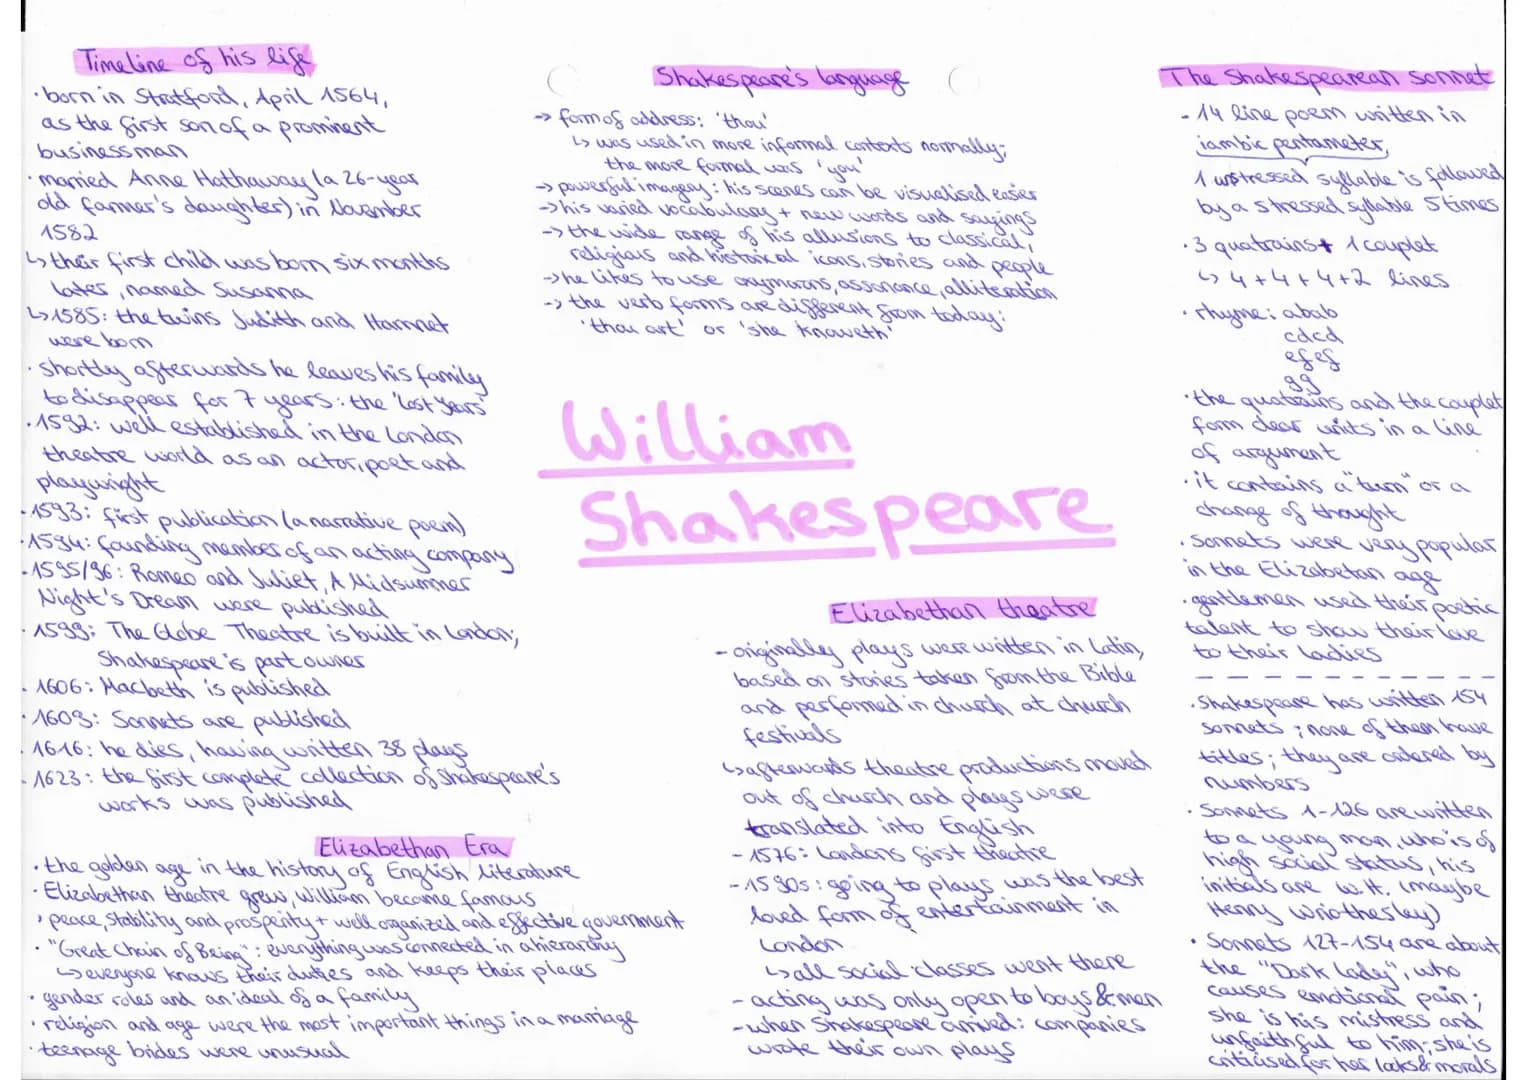 Timeline of his life
· born in Stratford, April 1564,
as the first son of a prominent
businessman
· married Anne Hathaway (a 26-year
old farmer's daughter) in November
1582
↳ their first child was born six months
later, named Susanna
↳ 1585: the twins Judith and Hamnet
were born
· shortly afterwards he leaves his family
to disappear for 7 years: the 'Lost Years'
· 1592: well established in the London
theatre world as an actor, poet and
playwright
· 1593: first publication (a narrative poem)
· 1594: founding member of an acting company
· 1595/96: Romeo and Juliet, A Midsummer
Night's Dream were published
· 1599: The Globe Theatre is built in London;
Shakespeare is part owner
· 1606: Macbeth is published
· 1609: Sonnets are published
· 1616: he dies, having written 38 plays
· 1623: the first complete collection of Shakespeare's
works was published
Elizabethan Era
· the golden age in the history of English literature
· Elizabethan theatre grew, William became famous
· peace, stability and prosperity + well organized and effective government
· "Great Chain of Being": everything was connected in a hierarchy
↳ everyone knows their duties and keeps their places
· gender roles and an ideal of a family
· religion and age were the most important things in a marriage
· teenage brides were unusual
Shakespeare's language
→ form of address: 'thou'
↳ was used in more informal contexts normally;
the more formal was 'you'
→ powerful imagery: his scenes can be visualised easier
→ his varied vocabulary + new words and sayings
→ the wide range of his allusions to classical,
religious and historical icons, stories and people
→ he likes to use oxymorons, assonance, alliteration
→ the verb forms are different from today:
'thou art' or 'she knoweth'
William
Shakespeare
Elizabethan theatre
- originally plays were written in Latin,
based on stories taken from the Bible
and performed in church at church
festivals
↳ afterwards theatre productions moved
out of church and plays were
translated into English
- 1576: London's first theatre
- 1590s: going to plays was the best
loved form of entertainment in
London
↳ all social classes went there
- acting was only open to boys & men
- when Shakespeare arrived: companies
wrote their own plays
The Shakespearean sonnet
- 14 line poem written in
iambic pentameter,
1 unstressed syllable is followed
by a stressed syllable 5 times
· 3 quatrains + 1 couplet
↳ 4 + 4 + 4 + 2 lines
· rhyme: abab
cdcd
efef
gg
· the quatrains and the couplet
form clear units in a line
of argument
· it contains a "turn" or a
change of thought
· sonnets were very popular
in the Elizabetan age
· gentlemen used their poetic
talent to show their love
to their ladies
· Shakespeare has written 154
sonnets; none of them have
titles; they are ordered by
numbers
· Sonnets 1-126 are written
to a young man, who is of
high social status, his
initials are W.H. (maybe
Henry Wriothesley)
· Sonnets 127-154 are about
the "Dark Lady", who
causes emotional pain;
she is his mistress and
unfaithful to him; she is
criticised for her looks & morals